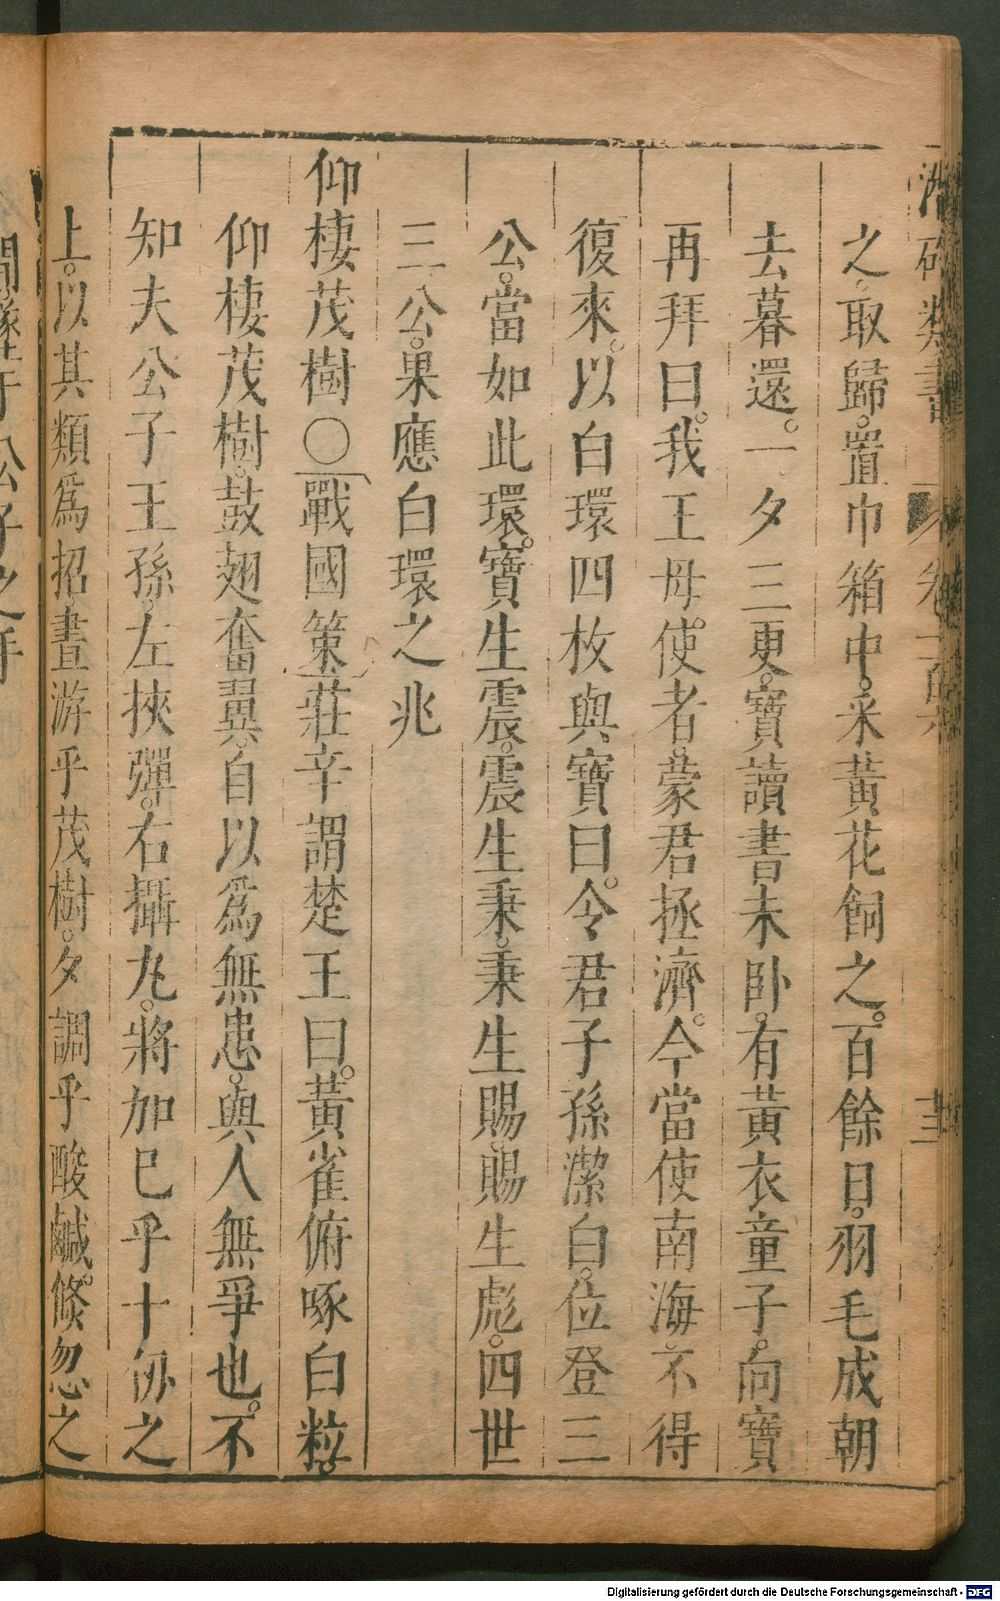 之取歸。置巾箱中。采黃花飼之。百餘日。羽毛成朝
去暮還。一夕三更。寶讀書未卧。有黃衣童子。向寶
再拜曰。我王母使者。蒙君拯濟。今當使南海。不得
復來。以白環四枚與寶曰。令君子孫潔白。位登三
公。當如此環。寶生震。震生秉。秉生賜。賜生彪。四世
三公。果應白環之兆
仰棲茂樹〇戰國策莊辛謂楚王曰。黃雀俯啄白粒。
仰棲茂樹。鼓翅奮翼。自以爲無患。與人無爭也。不
知夫公子王孫。左挾彈。右攝丸。將加已乎十仞之
上。以其類爲招。晝游乎茂樹。夕調乎酸鹹。倐忽之
間。墜于公子之手
Digitalisierung gefördert durch die Deutsche Forschungsgemeinschaft - DFG